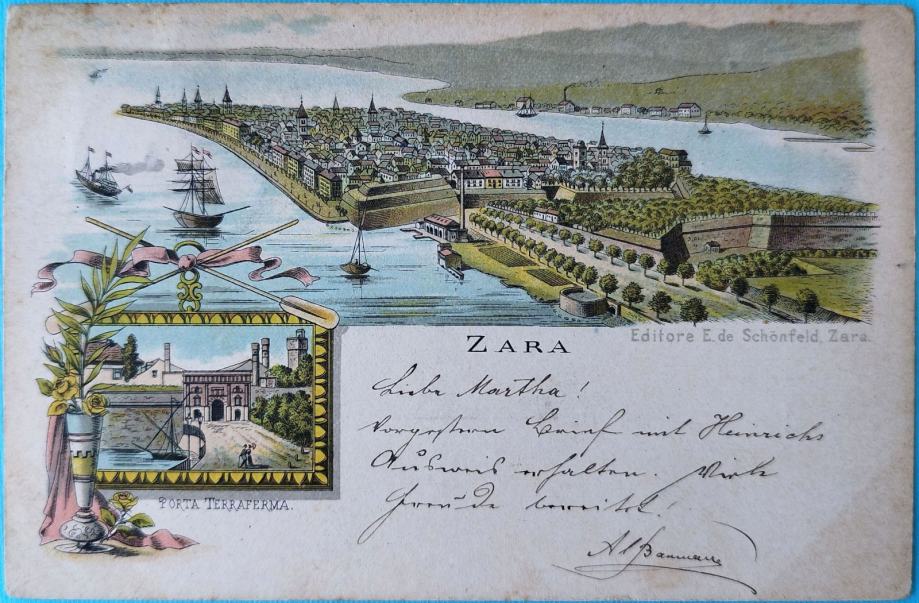 Editore E. de Schönfeld, Zara.
ZARA
Liebe Martha!
Vorgestern Brief mit Heinrichs
Ausweis erhalten. Viele
Freude bereitet!
Al Baumann
PORTA TERRAFERMA.